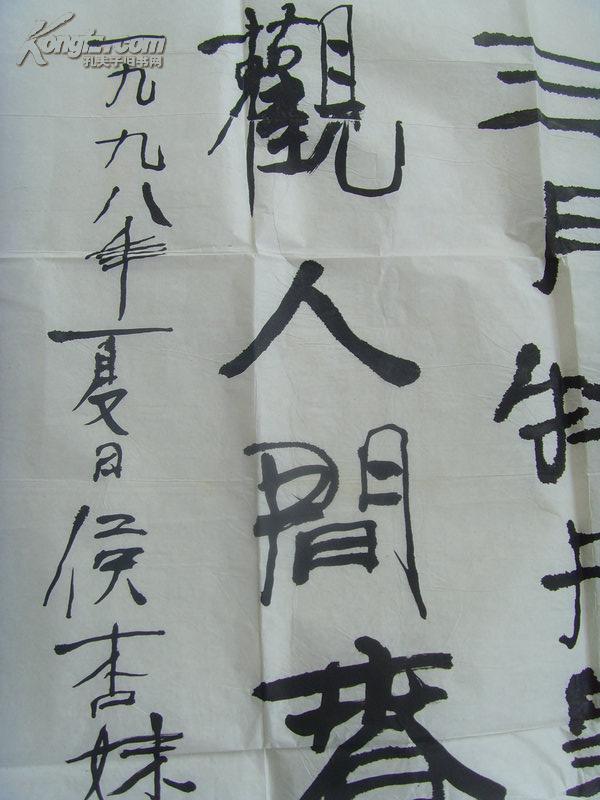 三月牡丹呈
觀人間春
一九九八年夏日侯杏妹
Kongfz.com
孔夫子旧书网